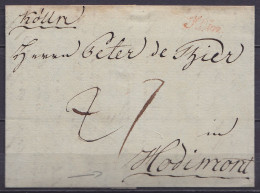 Kölln
Herrn Peter de Thier
in
Hodimont